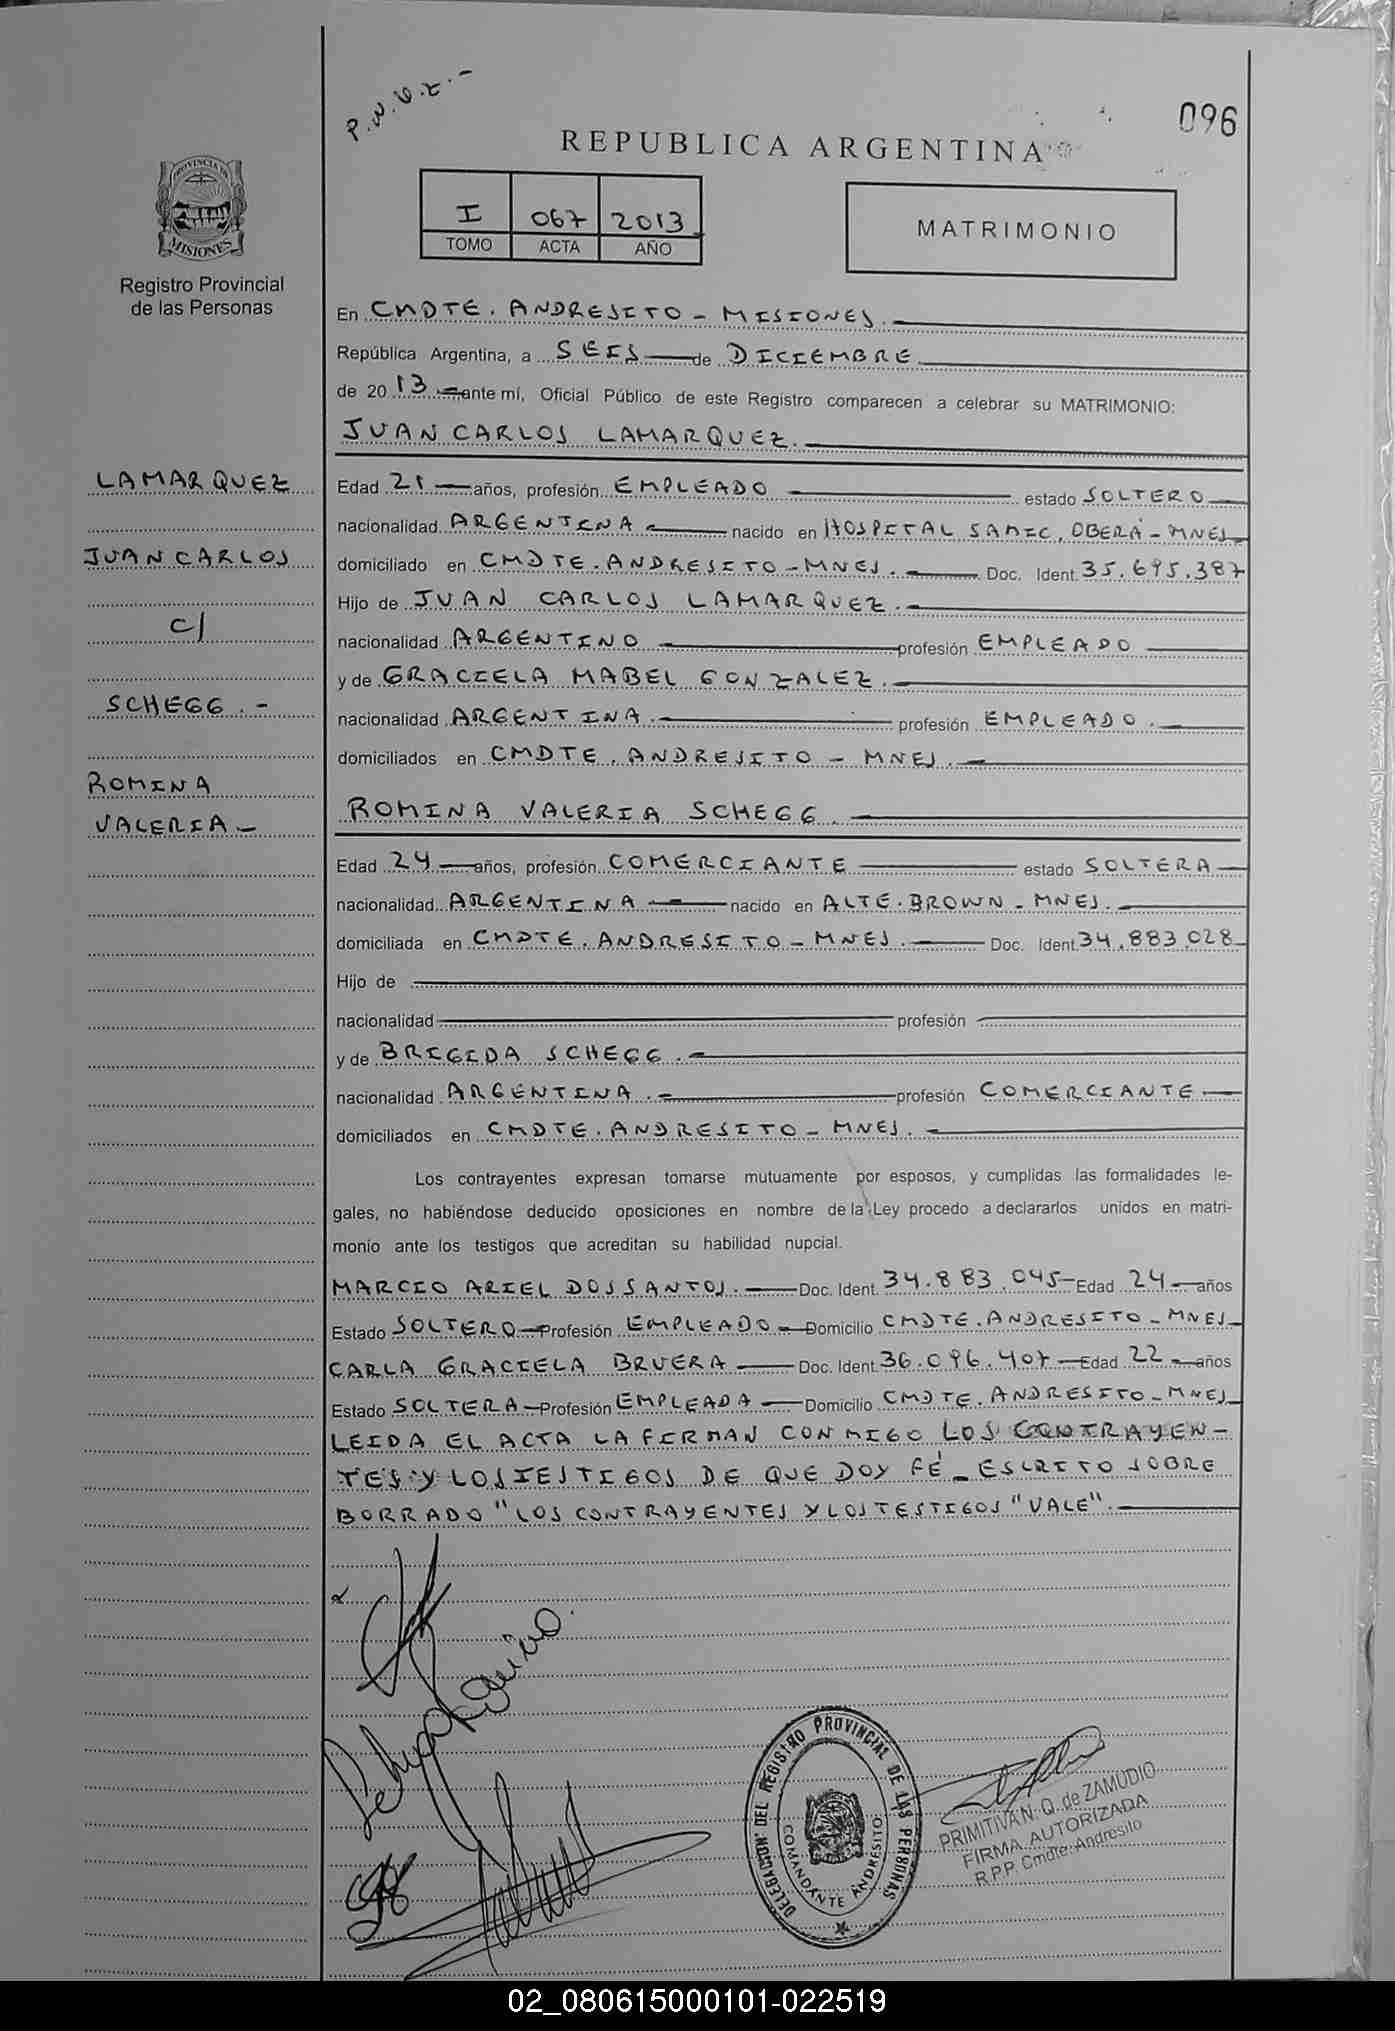 P.N.Q.Z.-
096
REPUBLICA ARGENTINA
I 067 2013
TOMO ACTA AÑO
MATRIMONIO
PROVINCIA DE
MISIONES
Registro Provincial
de las Personas
En CMDTE. ANDRESITO - MISIONES.
República Argentina, a SEIS de DICIEMBRE
de 2013 ante mí, Oficial Público de este Registro comparecen a celebrar su MATRIMONIO:
JUAN CARLOS LAMARQUEZ.
LAMARQUEZ
JUAN CARLOS
c/
SCHEGG.-
ROMINA
VALERIA-
Edad 21 años, profesión EMPLEADO estado SOLTERO
nacionalidad ARGENTINA nacido en HOSPITAL SAMIC, OBERÁ - MNES
domiciliado en CMDTE. ANDRESITO - MNES. Doc. Ident. 35.695.387
Hijo de JUAN CARLOS LAMARQUEZ.
nacionalidad ARGENTINO profesión EMPLEADO
y de GRACIELA MABEL GONZALEZ.
nacionalidad ARGENTINA. profesión EMPLEADO.
domiciliados en CMDTE. ANDRESITO - MNES.
ROMINA VALERIA SCHEGG.
Edad 24 años, profesión COMERCIANTE estado SOLTERA
nacionalidad ARGENTINA nacido en ALTE. BROWN - MNES.
domiciliada en CMDTE. ANDRESITO - MNES. Doc. Ident. 34.883.028
Hijo de
nacionalidad profesión
y de BRIGIDA SCHEGG.
nacionalidad ARGENTINA. profesión COMERCIANTE
domiciliados en CMDTE. ANDRESITO - MNES.
Los contrayentes expresan tomarse mutuamente por esposos, y cumplidas las formalidades le-
gales, no habiéndose deducido oposiciones en nombre de la Ley procedo a declararlos unidos en matri-
monio ante los testigos que acreditan su habilidad nupcial.
MARCIO ARIEL DOS SANTOS. Doc. Ident. 34.883.045 Edad 24 años
Estado SOLTERO Profesión EMPLEADO Domicilio CMDTE. ANDRESITO - MNES
CARLA GRACIELA BRUERA Doc. Ident. 36.096.407 Edad 22 años
Estado SOLTERA Profesión EMPLEADA Domicilio CMDTE. ANDRESITO - MNES
LEIDA EL ACTA LA FIRMAN CONMIGO LOS CONTRAYEN-
TES Y LOS TESTIGOS DE QUE DOY FÉ - ESCRITO SOBRE
BORRADO "LOS CONTRAYENTES Y LOS TESTIGOS" VALE".
DELEGACION DEL REGISTRO PROVINCIAL DE LAS PERSONAS
COMANDANTE ANDRESITO
PRIMITIVA N. Q. de ZAMUDIO
FIRMA AUTORIZADA
R.P.P. Cmdte. Andresito
02_080615000101-022519